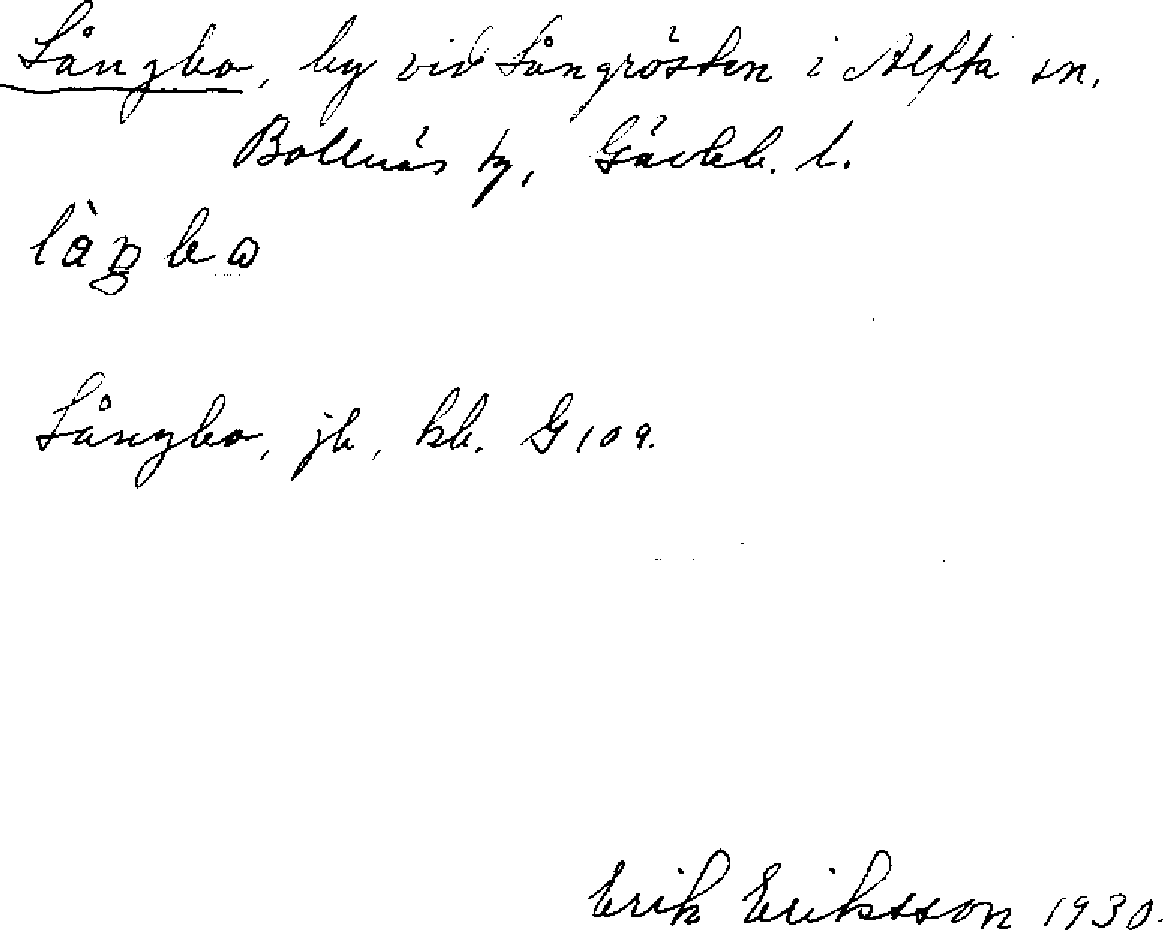 Långbo, by vid Långrösten i Alfta sn.
Bollnäs tg, Gävleb. l.
Långbo, jb, kb. G 109.
Erik Eriksson 1930.